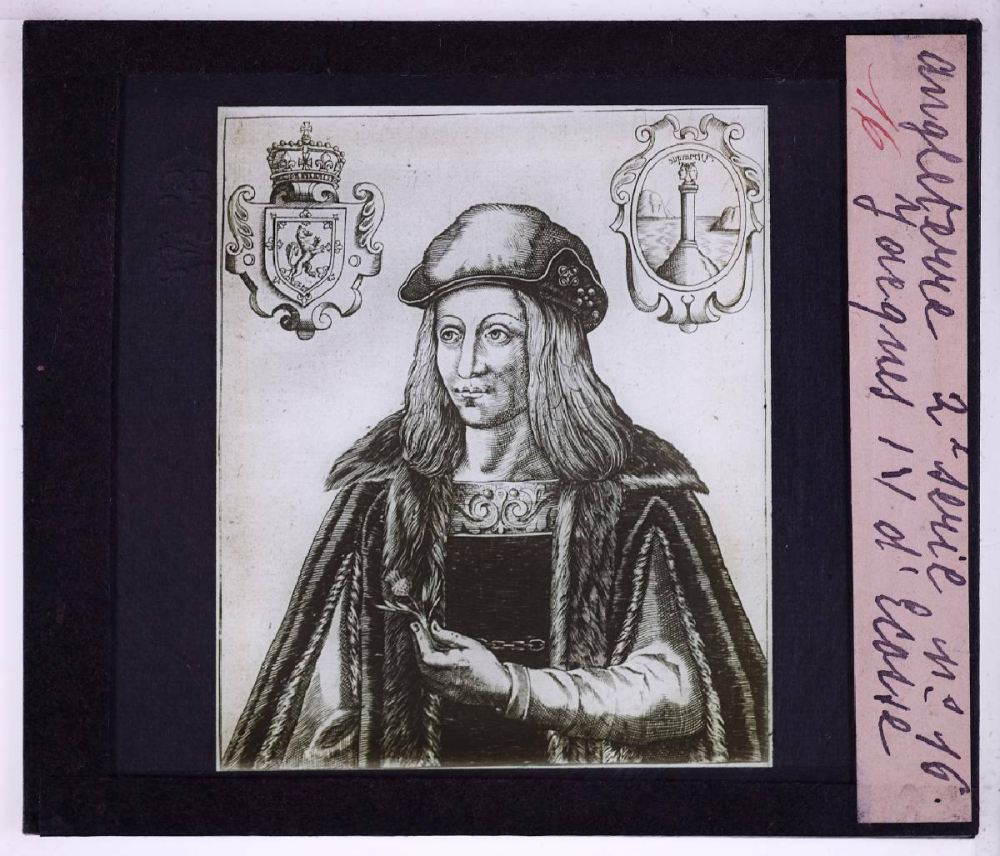 angleterre 2e série no 16.
16 Jacques IV d'Ecosse